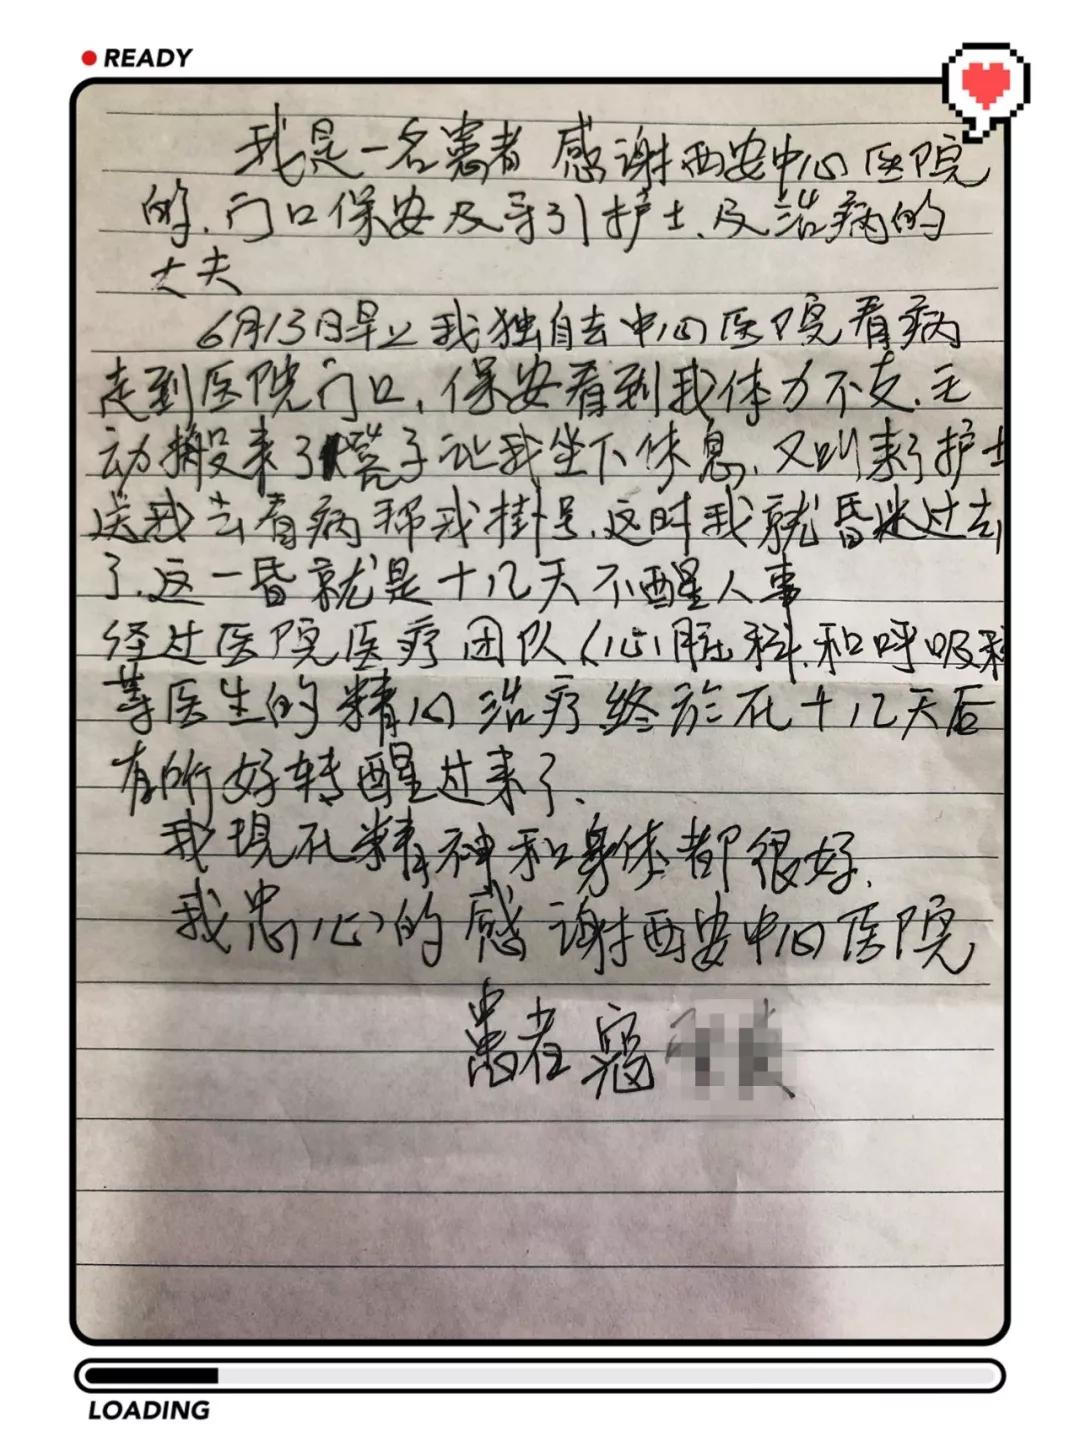 READY
我是一名患者 感谢西安中心医院
的、门口保安及导引护士、及治病的
大夫
6月13日早上我独自去中心医院看病
走到医院门口，保安看到我体力不支、主
动搬来了凳子让我坐下休息，又叫来了护士
送我去看病帮我挂号、这时我就昏迷过去
了、这一昏就是十几天不醒人事
经过医院医疗团队（心脏科、和呼吸科
等医生的精心治疗终於在十几天后
有所好转醒过来了、
我现在精神和身体都很好、
我忠心的感谢西安中心医院
患者 寇
LOADING